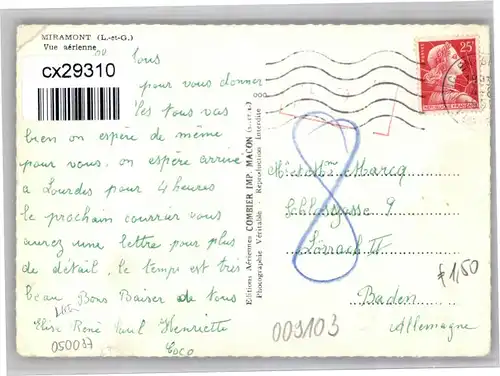 MIRAMONT (L.-et-G.)
Vue aérienne
cx29310
ous
pour vous donner
les tous vas
bien on espère de même
pour vous. on espère arrivé
a Lourdes pour 4 heures
le prochain courrier vous
aurez une lettre pour plus
de détail. le temps est très
beau. Bons Baiser de tous
Elise René Paul Henriette
Coco
050037
Editions Aériennes COMBIER IMP. MACON (S.-et-L.)
Photographie Véritable - Reproduction Interdite
25F
REPUBLIQUE FRANÇAISE
Mr et Mme Marcq
Schlossgasse 9
Lörrach II
Baden
Allemagne
€ 1,50
009103